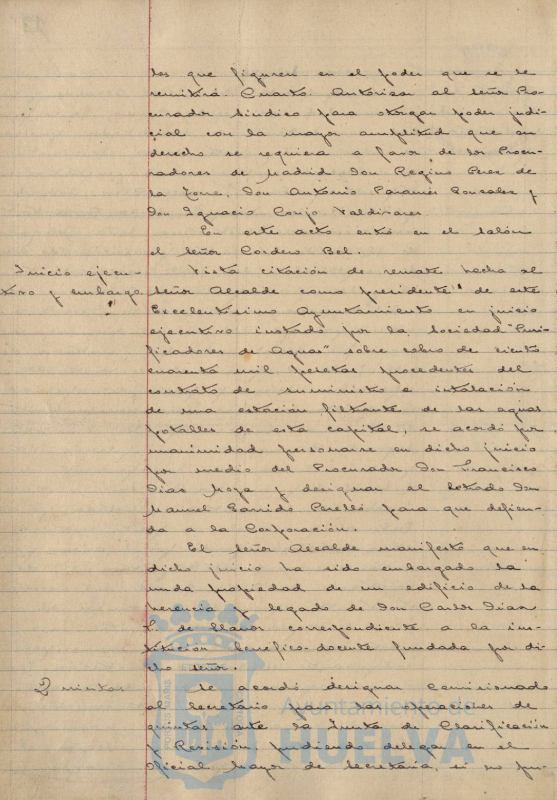 los que figuren en el poder que se le
remitirá. Cuarto. Autorizar al señor Pro-
curador Síndico para otorgar poder judi-
cial con la mayor amplitud que en
derecho se requiera a favor de los Procu-
radores de Madrid Don Regino Perez de
la Torre, Don Antonio Paramés Gonzalez y
Don Ignacio Corujo Valdivares.
En este acto entró en el salón
el señor Cordero Bel.
Inicio ejecu-
tivo y embargo.
Vista citación de remate hecha al
señor Alcalde como presidente de este
Excelentísimo Ayuntamiento en juicio
ejecutivo instado por la Sociedad "Puri-
ficadores de Aguas" sobre cobro de ciento
cuarenta mil pesetas procedentes del
contrato de suministro e istalación
de una estación filtrante de las aguas
potables de esta capital, se acordó por
unanimidad personarse en dicho juicio
por medio del Procurador Don Francisco
Dias Moya y designar al letrado Don
Manuel Garrido Perelló para que defien-
da a la Corporación.
El señor Alcalde manifestó que en
dicho juicio ha sido embargado la
nuda propiedad de un edificio de la
herencia y legado de Don Carlos Dian
de Llanor correspondiente a la ins-
titución benéfico-docente fundada por di-
cho señor.
Quintas
Se acordó designar Comisionado
al Secretario para las operaciones de
quintas ante la Junta de Clasificación
y Revisión, pudiendo delegar en el
Oficial Mayor de Secretaría, si no pu-
Ayuntamiento de
HUELVA